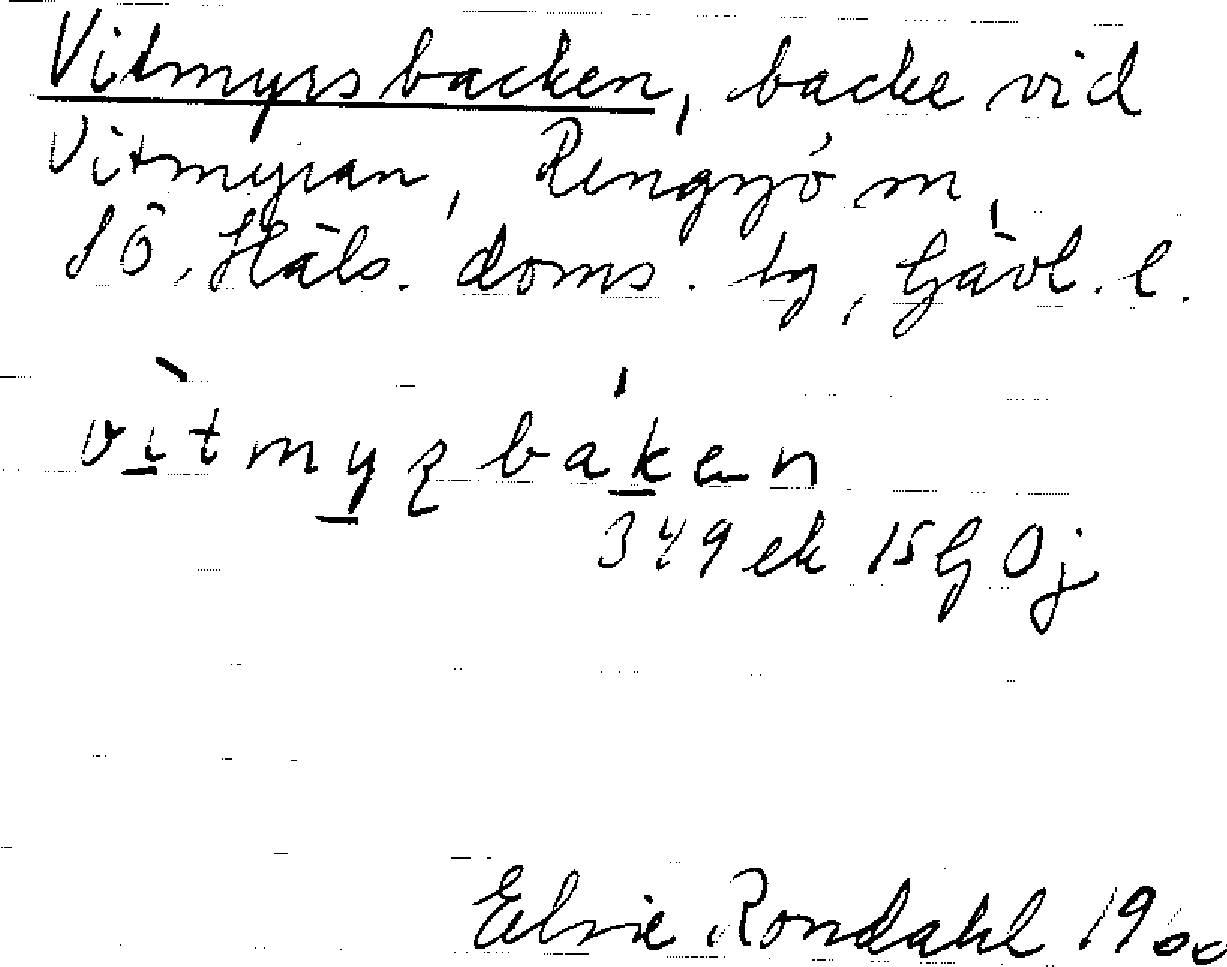 Vitmyrsbacken, backe vid
Vitmyran, Rengsjö sn,
SÖ. Häls. doms. bg, Gävl. l.
vìtmyʂbákən
349 ek 15G Oj
Elvie Rondahl 1960